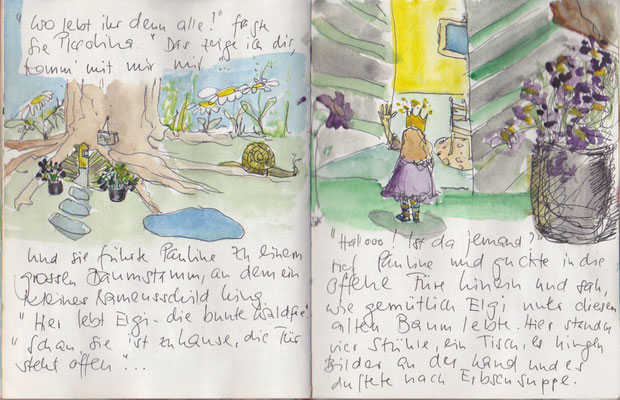 "Wo lebt ihr denn alle?" fragte
sie Piccolina. "Das zeige ich dir,
komm' mit mir mir ...
Und sie führte Pauline zu einem
grossen Baumstamm, an dem ein
kleines Namensschild hing
"Hier lebt Elgi - die bunte Waldfee"
"Schau, sie ist zuhause, die Tür
steht offen"...
"Hallooo! Ist da jemand?"
rief Pauline und guckte in die
offene Türe hinein und sah,
wie gemütlich Elgi unter diesem
alten Baum lebte. Hier standen
vier Stühle, ein Tisch, es hingen
Bilder an der Wand und es
duftete nach Erbsensuppe.